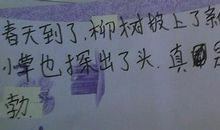 春天到了.柳树披上了
小草也探出了头.真
勃.